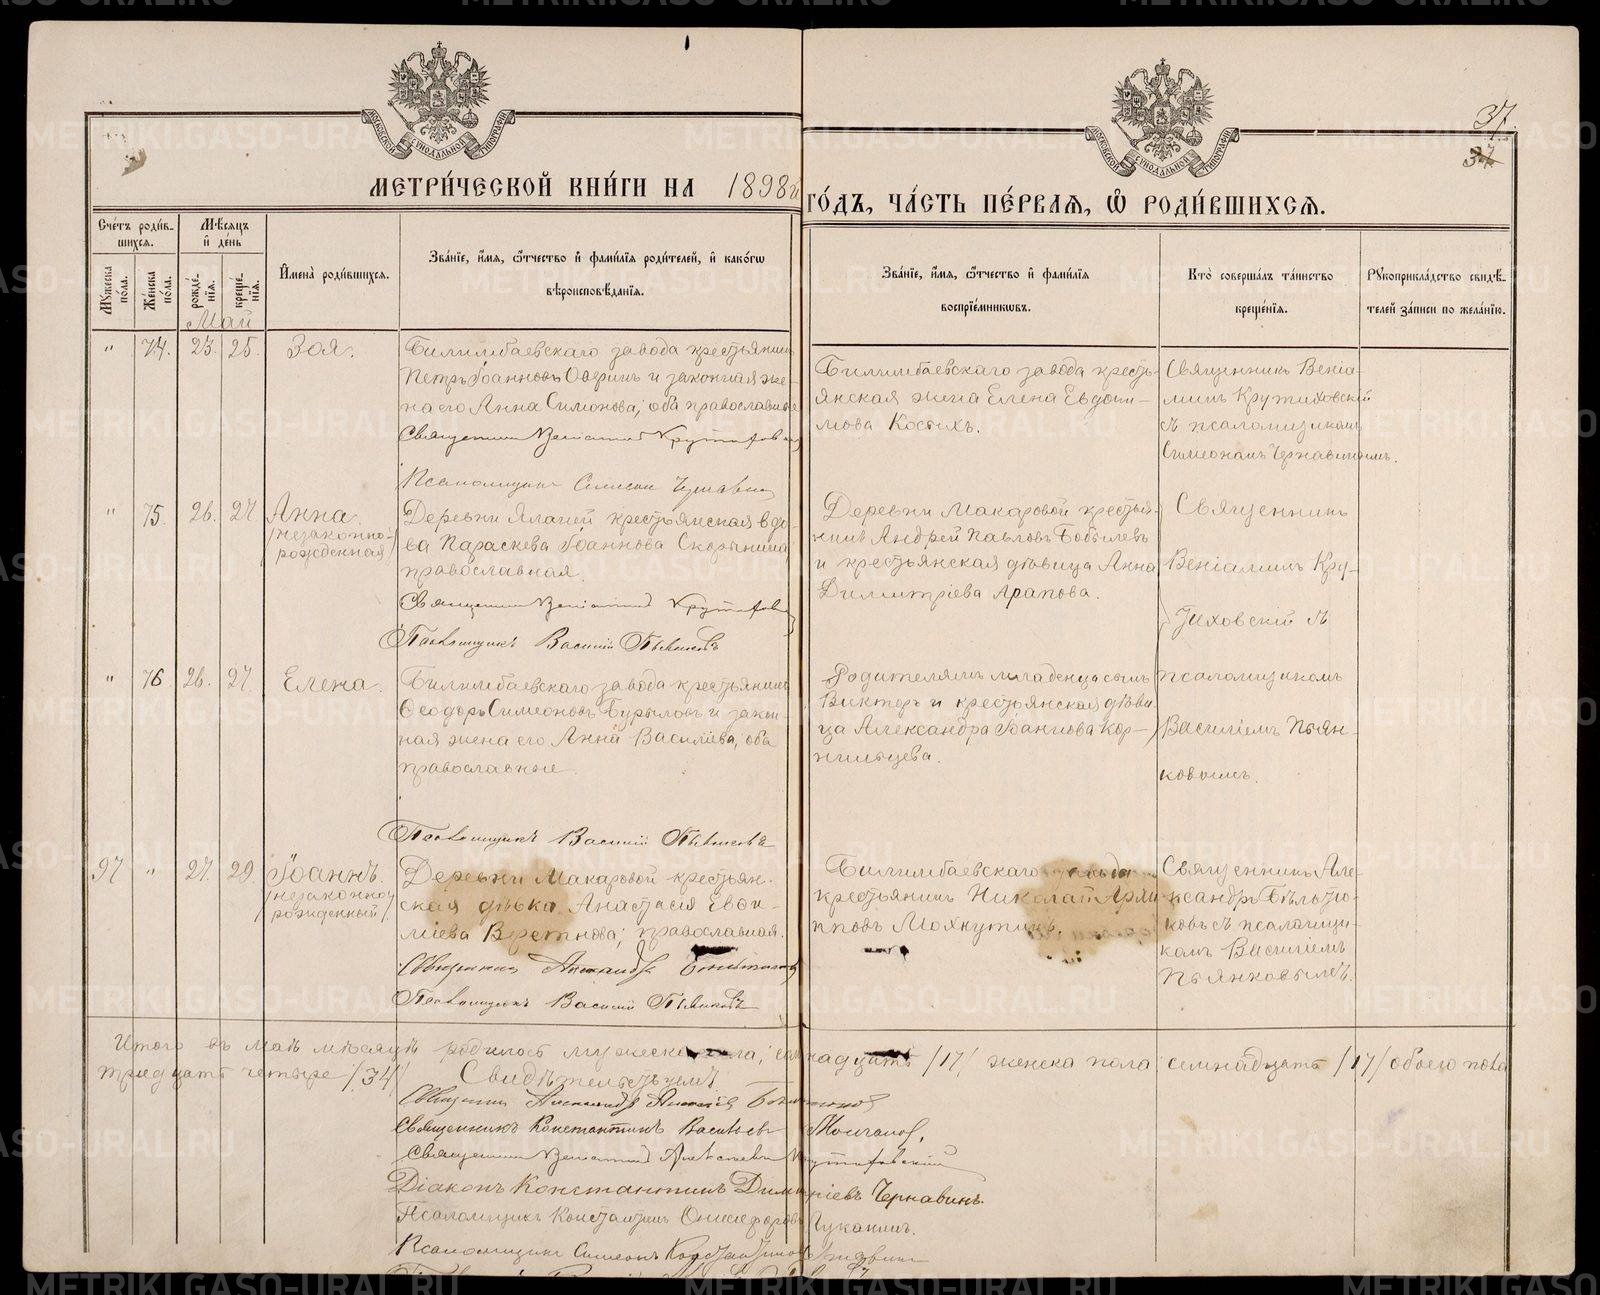 37.
34
МОСКОВСКОЙ СѴНОДАЛЬНОЙ ТИПОГРАФІИ
МОСКОВСКОЙ СѴНОДАЛЬНОЙ ТИПОГРАФІИ
МЕТРИ́ЧЕСКОЙ КНИ́ГИ НА 1898й
ГО́ДЪ, ЧА́СТЬ ПЕ́РВАѦ, Ѡ҆ РОДИ́ВШИХСѦ.
Сче́тъ роди́в-
шихся.
Мѣ́сяцъ
и҆ де́нь
Мꙋ́жеска
по́ла.
Же́нска
по́ла.
рожде́-
нїя.
креще́-
нїя.
И҆мена̀ роди́вшихся.
Зва́нїе, и҆́мя, ѻ҆́тчество и҆ фами́лїя роди́телей, и҆ како́гѡ
вѣроисповѣ́данїя.
Зва́нїе, и҆́мя, ѻ҆́тчество и҆ фами́лїя
воспрїе́мниковъ.
Кто̀ соверша́лъ та́инство
креще́нїя.
Рꙋкоприкла́дство свидѣ́-
телей за́писи по жела́нїю.
Май
" 74. 23. 25. Зоя.
Билимбаевскаго завода крестьянинъ
Петръ Іоанновъ Оверинъ и законная же-
на его Анна Симонова; оба православные
Священникъ Веніаминъ Крутиховскій
Псаломщикъ Симеонъ Чернавинъ
Билимбаевскаго завода кресть-
янская жена Елена Евдоки-
мова Костыхъ.
Священникъ Веніа-
минъ Крутиховскій
съ псаломщикомъ
Симеономъ Чернавинымъ.
" 75. 26. 27. Анна
/незаконно-
рожденная/
Деревни крестьянская вдо-
ва Параскева Іоаннова Скорынина
православная.
Священникъ Веніаминъ Крутиховскій
Псаломщикъ Василій Пьянковъ
Деревни Макаровой крестья-
нинъ Андрей Павловъ Бобылевъ
и крестьянская дѣвица Анна
Димитріева Арапова.
Священникъ
Веніаминъ Кру-
тиховскій съ
" 76 26. 27. Елена.
Билимбаевскаго завода крестьянинъ
Ѳеодоръ Симеоновъ Бурыловъ и закон-
ная жена его Анна Васильева; оба
православные.
Псаломщикъ Василій Пьянковъ
Родителямъ младенца сынъ
Викторъ и крестьянская дѣви-
ца Александра Іоаннова Кор-
нильцева.
псаломщикомъ
Василіемъ Пьян-
ковымъ.
97 " 27. 29. Іоаннъ.
/незаконно
рожденный/
Деревни Макаровой крестьян-
ская дѣвка Анастасія Евѳи-
міева православная.
Священникъ Александръ
Псаломщикъ Василій Пьянковъ
Билимбаевскаго завода
крестьянинъ Николай
Мохнуткинъ.
Священникъ Але-
ксандръ Бѣльтю-
ковъ съ псаломщи-
комъ Василіемъ
Пьянковымъ.
Итого въ маѣ мѣсяцѣ родилось мужеска пола; семнадцать /17/ женска пола семнадцать /17/ обоего пола
тридцать четыре /34/ Свидѣтельствуемъ
Священникъ Александръ Алексѣевъ Бѣльтюковъ
Священникъ Константинъ Васильевъ Молчановъ.
Священникъ Веніаминъ Алексѣевъ Крутиховскій
Діаконъ Константинъ Димитріевъ Чернавинъ.
Псаломщикъ Константинъ Онисифоровъ Цуканинъ.
Псаломщикъ Симеонъ Константиновъ Чернавинъ
METRIKI.GASO-URAL.RU